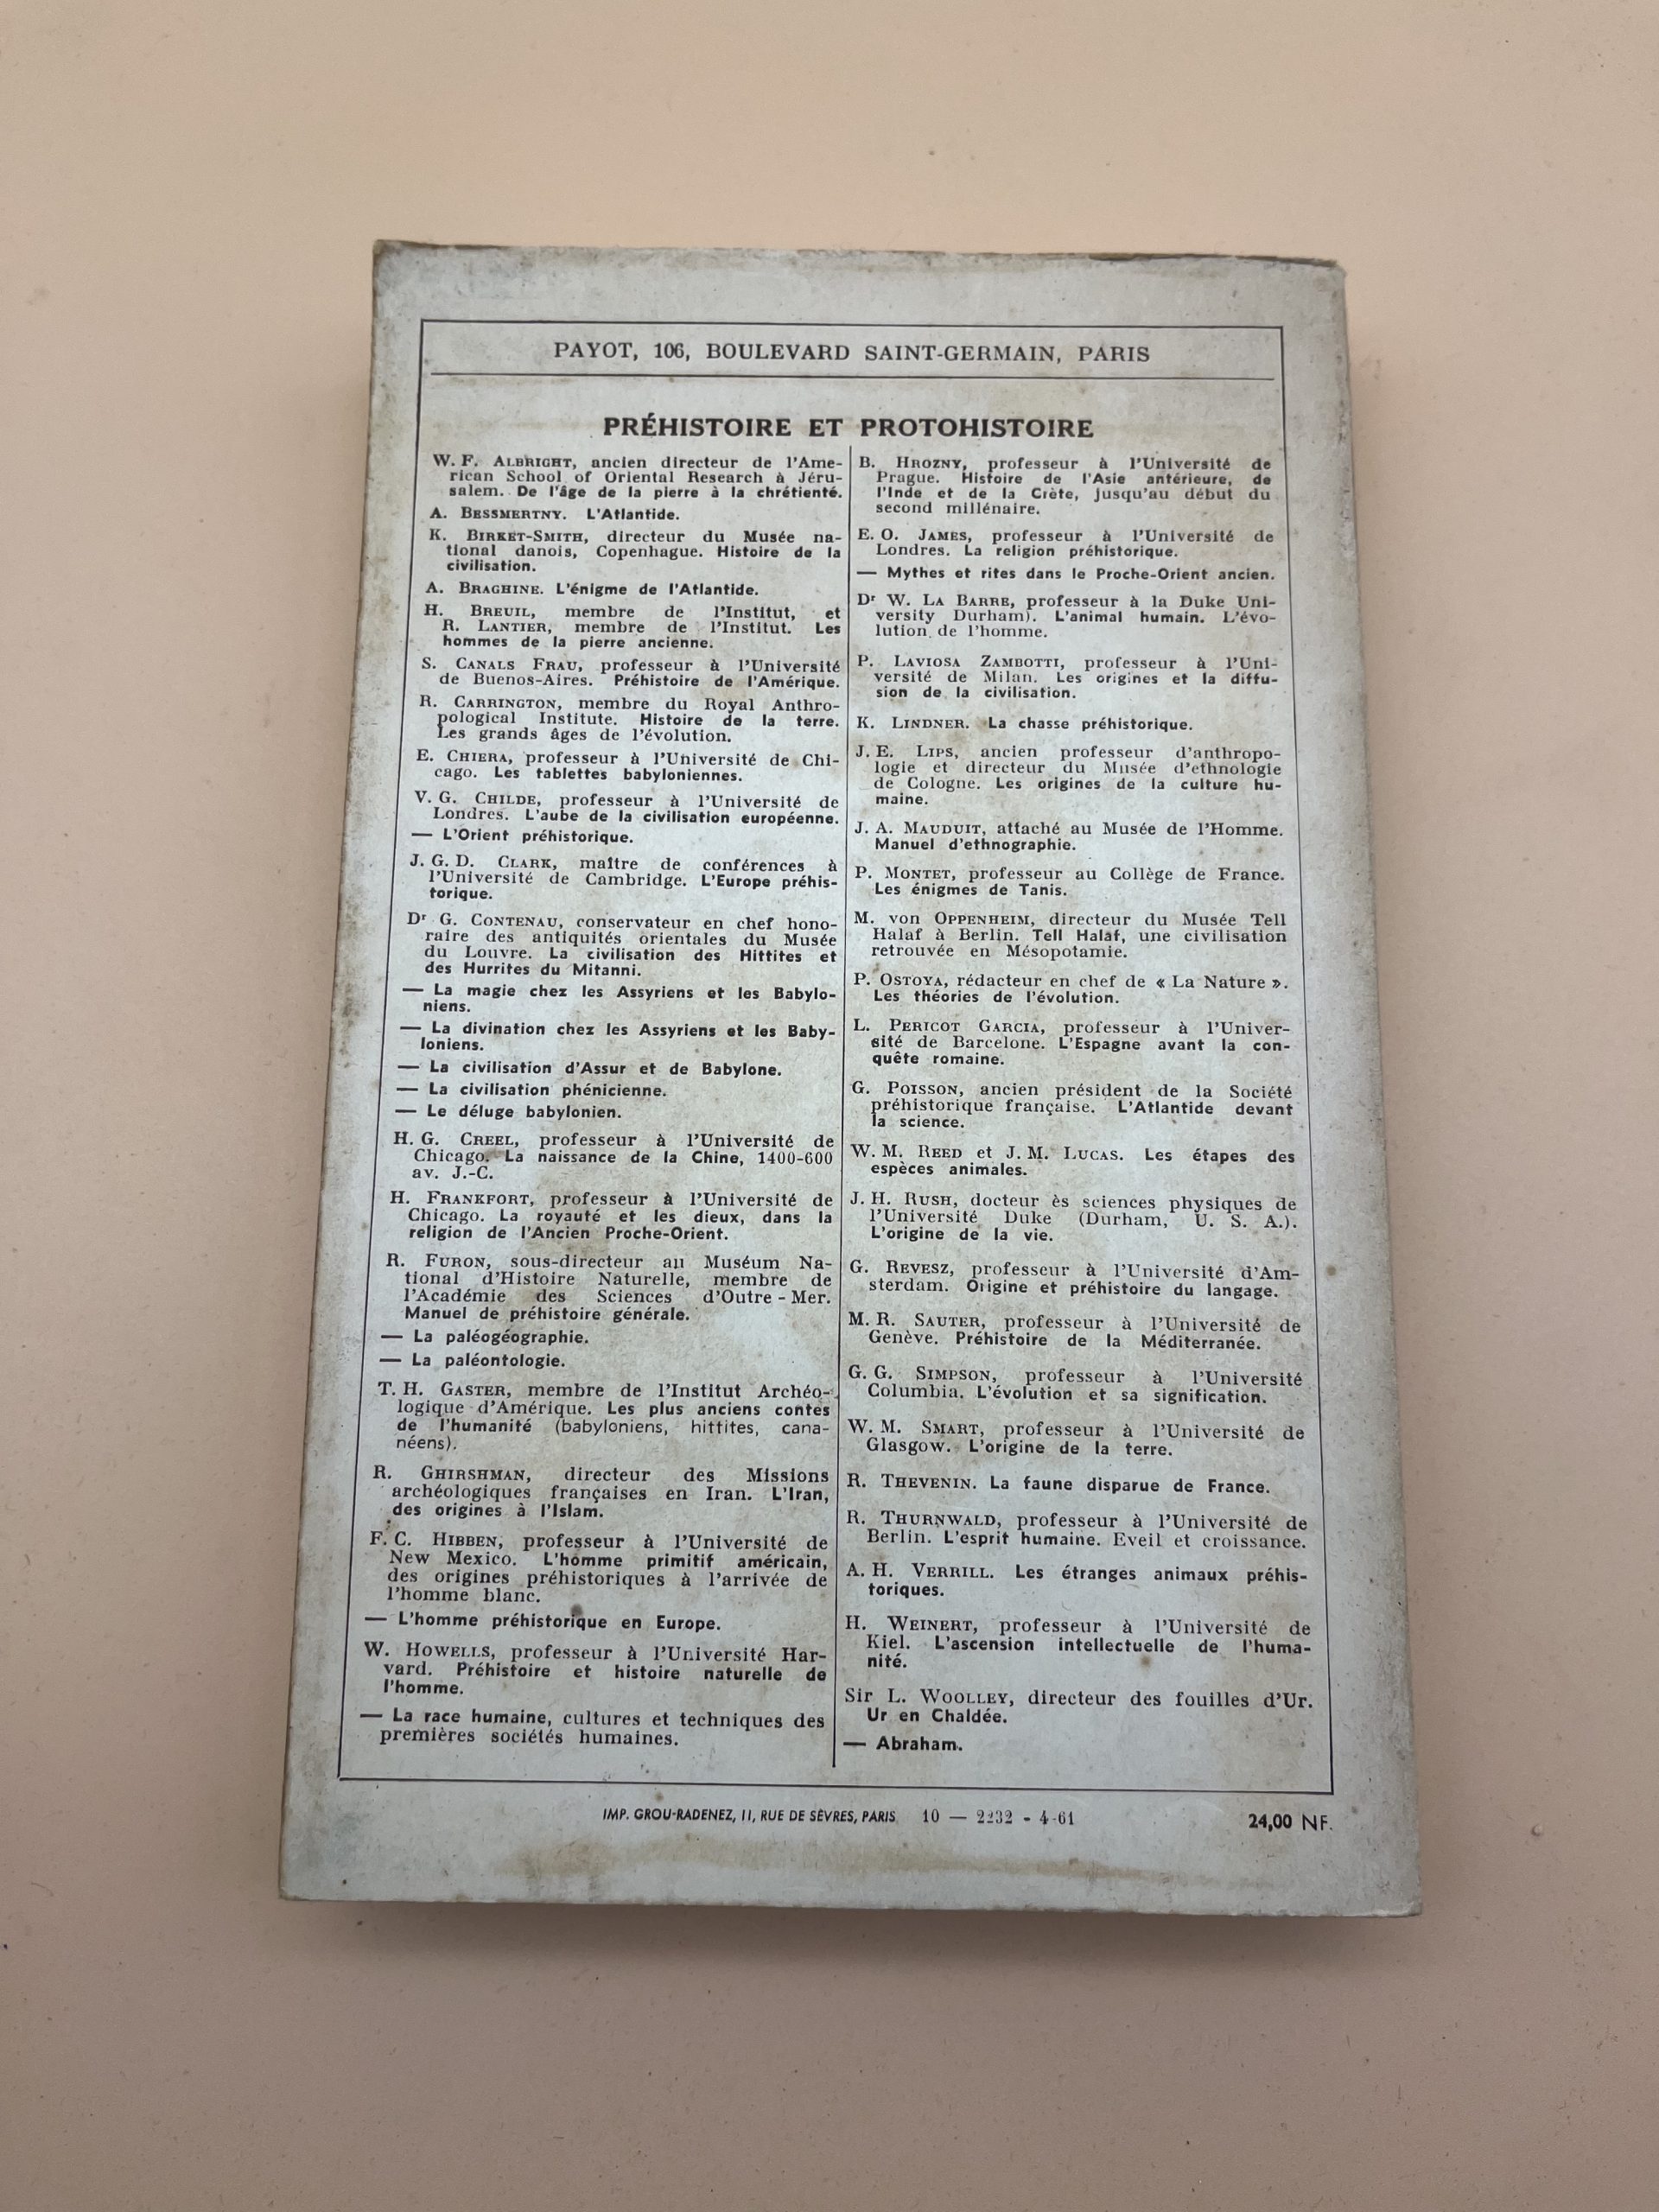 PAYOT, 106, BOULEVARD SAINT-GERMAIN, PARIS
PRÉHISTOIRE ET PROTOHISTOIRE
W. F. ALBRIGHT, ancien directeur de l'Ame-
rican School of Oriental Research à Jéru-
salem. De l'âge de la pierre à la chrétienté.
A. BESSMERTNY. L'Atlantide.
K. BIRKET-SMITH, directeur du Musée na-
tional danois, Copenhague. Histoire de la
civilisation.
A. BRAGHINE. L'énigme de l'Atlantide.
H. BREUIL, membre de l'Institut, et
R. LANTIER, membre de l'Institut. Les
hommes de la pierre ancienne.
S. CANALS FRAU, professeur à l'Université
de Buenos-Aires. Préhistoire de l'Amérique.
R. CARRINGTON, membre du Royal Anthro-
pological Institute. Histoire de la terre.
Les grands âges de l'évolution.
E. CHIERA, professeur à l'Université de Chi-
cago. Les tablettes babyloniennes.
V. G. CHILDE, professeur à l'Université de
Londres. L'aube de la civilisation européenne.
— L'Orient préhistorique.
J. G. D. CLARK, maître de conférences à
l'Université de Cambridge. L'Europe préhis-
torique.
Dr G. CONTENAU, conservateur en chef hono-
raire des antiquités orientales du Musée
du Louvre. La civilisation des Hittites et
des Hurrites du Mitanni.
— La magie chez les Assyriens et les Babylo-
niens.
— La divination chez les Assyriens et les Baby-
loniens.
— La civilisation d'Assur et de Babylone.
— La civilisation phénicienne.
— Le déluge babylonien.
H. G. CREEL, professeur à l'Université de
Chicago. La naissance de la Chine, 1400-600
av. J.-C.
H. FRANKFORT, professeur à l'Université de
Chicago. La royauté et les dieux, dans la
religion de l'Ancien Proche-Orient.
R. FURON, sous-directeur au Muséum Na-
tional d'Histoire Naturelle, membre de
l'Académie des Sciences d'Outre-Mer.
Manuel de préhistoire générale.
— La paléogéographie.
— La paléontologie.
T. H. GASTER, membre de l'Institut Archéo-
logique d'Amérique. Les plus anciens contes
de l'humanité (babyloniens, hittites, cana-
néens).
R. GHIRSHMAN, directeur des Missions
archéologiques françaises en Iran. L'Iran,
des origines à l'Islam.
F. C. HIBBEN, professeur à l'Université de
New Mexico. L'homme primitif américain,
des origines préhistoriques à l'arrivée de
l'homme blanc.
— L'homme préhistorique en Europe.
W. HOWELLS, professeur à l'Université Har-
vard. Préhistoire et histoire naturelle de
l'homme.
— La race humaine, cultures et techniques des
premières sociétés humaines.
B. HROZNY, professeur à l'Université de
Prague. Histoire de l'Asie antérieure, de
l'Inde et de la Crète, jusqu'au début du
second millénaire.
E. O. JAMES, professeur à l'Université de
Londres. La religion préhistorique.
— Mythes et rites dans le Proche-Orient ancien.
Dr W. LA BARRE, professeur à la Duke Uni-
versity Durham). L'animal humain. L'évo-
lution de l'homme.
P. LAVIOSA ZAMBOTTI, professeur à l'Uni-
versité de Milan. Les origines et la diffu-
sion de la civilisation.
K. LINDNER. La chasse préhistorique.
J. E. LIPS, ancien professeur d'anthropo-
logie et directeur du Musée d'ethnologie
de Cologne. Les origines de la culture hu-
maine.
J. A. MAUDUIT, attaché au Musée de l'Homme.
Manuel d'ethnographie.
P. MONTET, professeur au Collège de France.
Les énigmes de Tanis.
M. von OPPENHEIM, directeur du Musée Tell
Halaf à Berlin. Tell Halaf, une civilisation
retrouvée en Mésopotamie.
P. OSTOYA, rédacteur en chef de « La Nature ».
Les théories de l'évolution.
L. PERICOT GARCIA, professeur à l'Univer-
sité de Barcelone. L'Espagne avant la con-
quête romaine.
G. POISSON, ancien président de la Société
préhistorique française. L'Atlantide devant
la science.
W. M. REED et J. M. LUCAS. Les étapes des
espèces animales.
J. H. RUSH, docteur ès sciences physiques de
l'Université Duke (Durham, U. S. A.).
L'origine de la vie.
G. REVESZ, professeur à l'Université d'Am-
sterdam. Origine et préhistoire du langage.
M. R. SAUTER, professeur à l'Université de
Genève. Préhistoire de la Méditerranée.
G. G. SIMPSON, professeur à l'Université
Columbia. L'évolution et sa signification.
W. M. SMART, professeur à l'Université de
Glasgow. L'origine de la terre.
R. THEVENIN. La faune disparue de France.
R. THURNWALD, professeur à l'Université de
Berlin. L'esprit humaine. Eveil et croissance.
A. H. VERRILL. Les étranges animaux préhis-
toriques.
H. WEINERT, professeur à l'Université de
Kiel. L'ascension intellectuelle de l'huma-
nité.
Sir L. WOOLLEY, directeur des fouilles d'Ur.
Ur en Chaldée.
— Abraham.
IMP. GROU-RADENEZ, 11, RUE DE SÈVRES, PARIS 10 — 2232 - 4-61
24,00 NF.